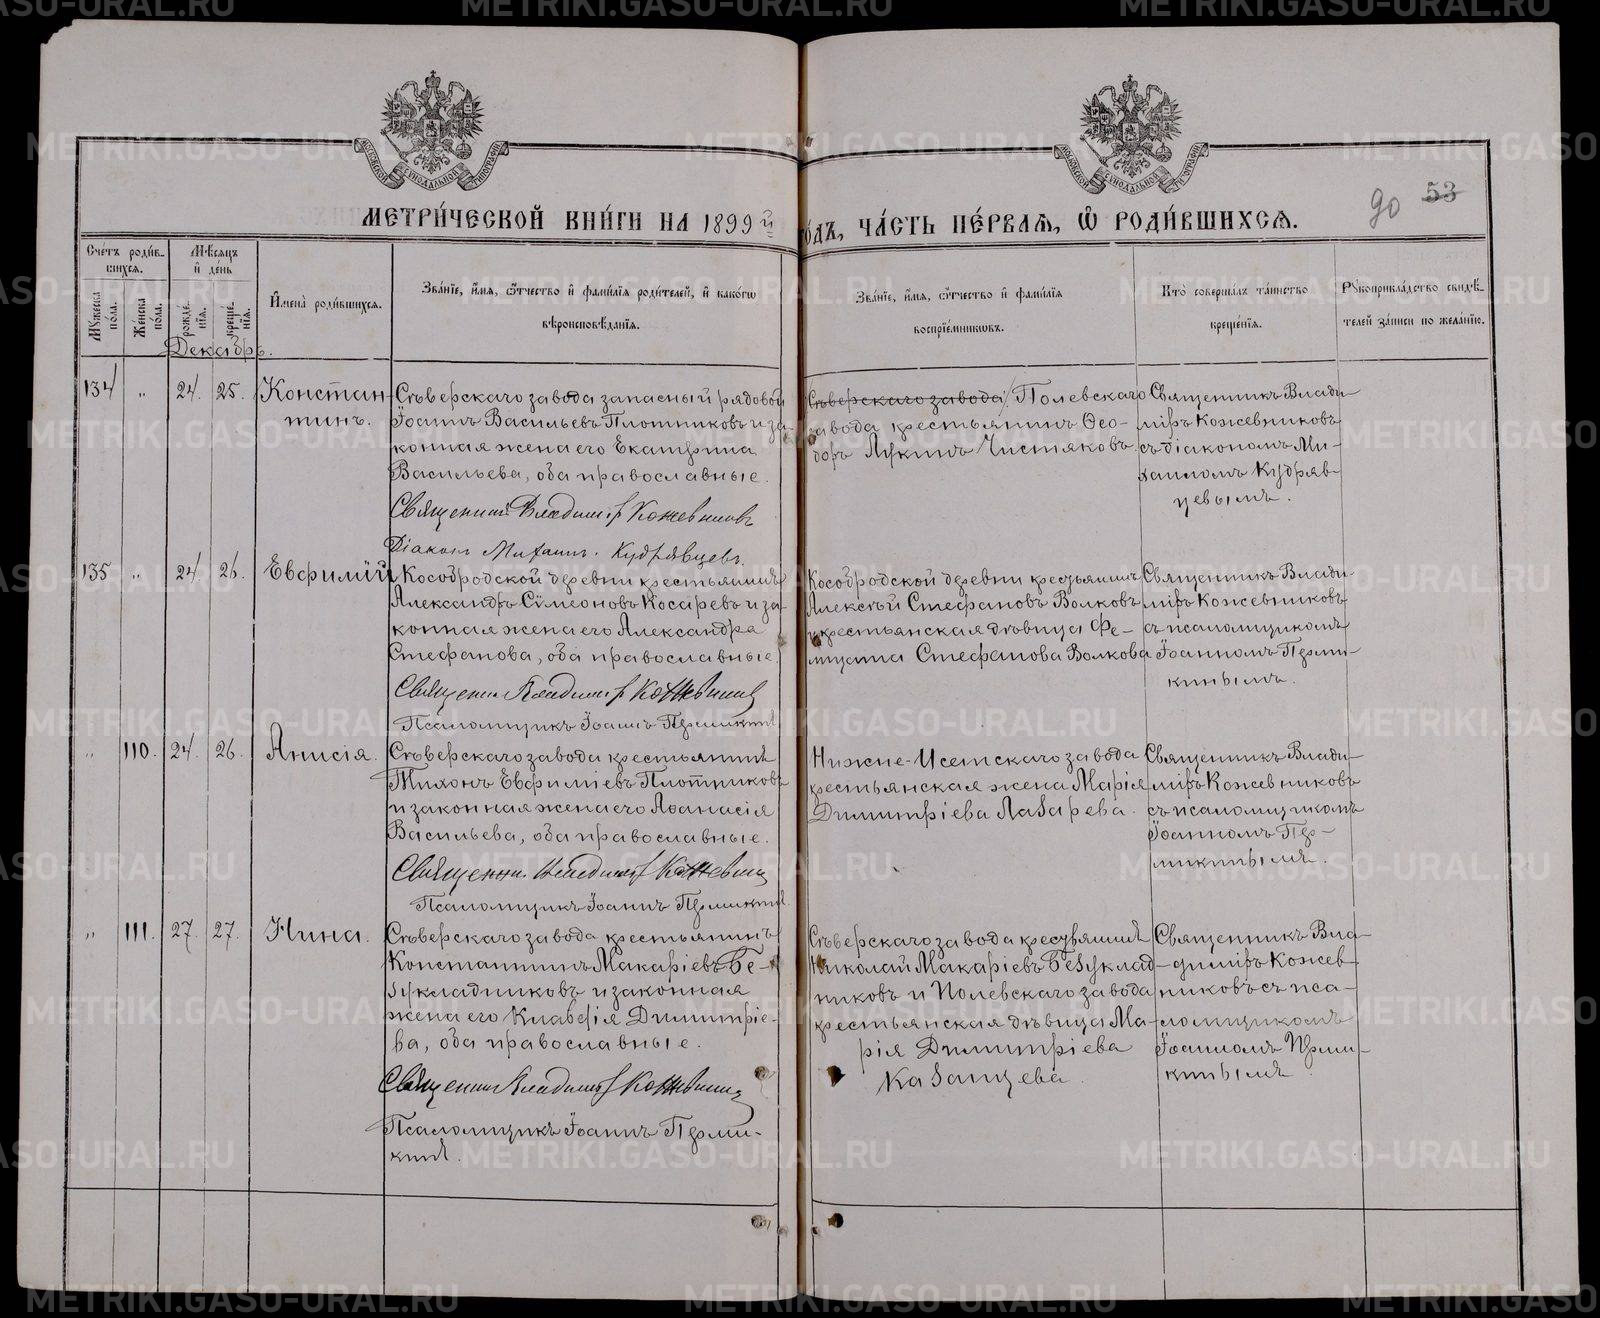 МЕТРИ́ЧЕСКОЙ КНИ́ГИ НА 1899й ГО́ДЪ, ЧА́СТЬ ПЕ́РВАѦ, Ѡ҆ РОДИ́ВШИХСѦ.
90 53
Сче́тъ роди́в-
шихсѧ.
Мꙋ́жеска по́ла.
Же́нска по́ла.
Мѣ́сѧцъ
и҆ де́нь
рожде́-
нїѧ.
креще́-
нїѧ.
Декабрь.
И҆мена̀ роди́вшихсѧ.
Зва́нїе, и҆́мѧ, ѻ҆́тчество и҆ фами́лїѧ роди́телей, и҆ како́гѡ
вѣроисповѣ́данїѧ.
Зва́нїе, и҆́мѧ, ѻ҆́тчество и҆ фами́лїѧ
воспрїе́мникѡвъ.
Кто̀ соверша́лъ та́инство
креще́нїѧ.
Рꙋкоприкла́дство свидѣ́-
телей за́писи по жела́нїю.
134 „ 24. 25. Констан-
тинъ.
Сѣверскаго завода запасный рядовой
Іоаннъ Васильевъ Плотниковъ и за-
конная жена его Екатерина
Васильева, оба православные.
Священник Владимір Кожевников
Діаконъ Михаил. Кудрявцевъ.
Сѣверскаго завода Полевскаго
завода крестьянинъ Ѳео-
доръ Лукинъ Чистяковъ
Священникъ Влади-
міръ Кожевниковъ
съ діакономъ Ми-
хаиломъ Кудряв-
цевымъ.
135 „ 24. 26. Евфимій
Кособродской деревни крестьянинъ
Александръ Сѵмеоновъ Косаревъ и за-
конная жена его Александра
Стефанова, оба православные.
Священник Владимір Кожевников
Псаломщикъ Іоаннъ Пермикинъ
Кособродской деревни крестьянинъ
Алексѣй Стефановъ Волковъ
и крестьянская дѣвица Фе-
Стефанова Волкова
Священникъ Влади-
міръ Кожевниковъ
съ псаломщикомъ
Іоанномъ Перми-
кинымъ.
„ 110. 24. 26. Анисія.
Сѣверскаго завода крестьянинъ
Тихонъ Евфиміевъ Плотниковъ
и законная жена его Аѳанасія
Васильева, оба православные.
Священник Владимір Кожевников
Псаломщикъ Іоаннъ Пермикинъ.
Нижне-Исетскаго завода
крестьянская жена Марія
Димитріева Лазарева.
Священникъ Влади-
міръ Кожевниковъ
съ псаломщикомъ
Іоанномъ Пер-
микинымъ.
„ 111. 27. 27. Нина.
Сѣверскаго завода крестьянинъ
Константинъ Макаріевъ Бе-
зукладниковъ и законная
жена его Клавдія Димитріе-
ва, оба православные.
Священник Владимір Кожевников
Псаломщикъ Іоаннъ Перми-
кинъ.
Сѣверскаго завода крестьянинъ
Николай Макаріевъ Безуклад-
никовъ и Полевскаго завода
крестьянская дѣвица Ма-
рія Димитріева
Казанцева.
Священникъ Вла-
димиръ Кожев-
никовъ съ пса-
ломщикомъ
Іоанномъ Перми-
кинымъ.
METRIKI.GASO-URAL.RU